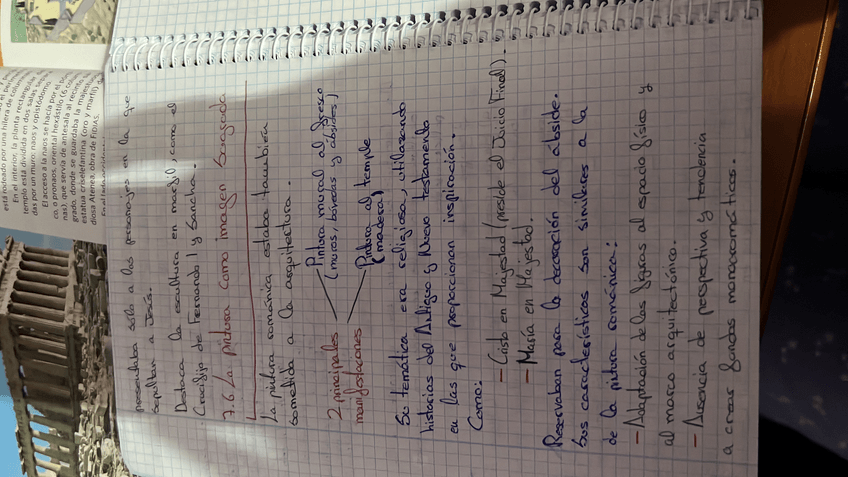 está rodeado por una hilera de column
En el interior, la planta rectangular
templo está dividida en dos salas sepa
das por un muro: naos y opistódomo.
El acceso a la naos se hacía por el
co, o pronaos, oriental hexástilo (6 colum
nas), que servía de antesala al recinto
grado, donde se guardaba la majest
estatua crisoelefantina (oro y marfil) de
diosa Atenea, obra de FIDIAS.
presentaba solo a los personajes en la que
sepultan a Jesús.
Destaca la escultura en marfil, como el
Crucifijo de Fernando I y Sancha.
7.6 La pintura como imagen sagrada
La pintura románica estaba también
sometida a la arquitectura.
2 principales
manifestaciones
Pintura mural al fresco
(muros, bóvedas y ábsides)
Pintura al temple
(madera)
Su temática era religiosa, utilizando
historias del Antiguo y Nuevo testamento
en las que proporcionan inspiración.
Como:
- Cristo en Majestad (preside el Juicio Final).
- María en Majestad.
Reservaban para la decoración del ábside.
Sus características son similares a la
de la pintura románica:
- Adaptación de las figuras al espacio físico y
al marco arquitectónico.
- Ausencia de perspectiva y tendencia
a crear fondos monocromáticos.